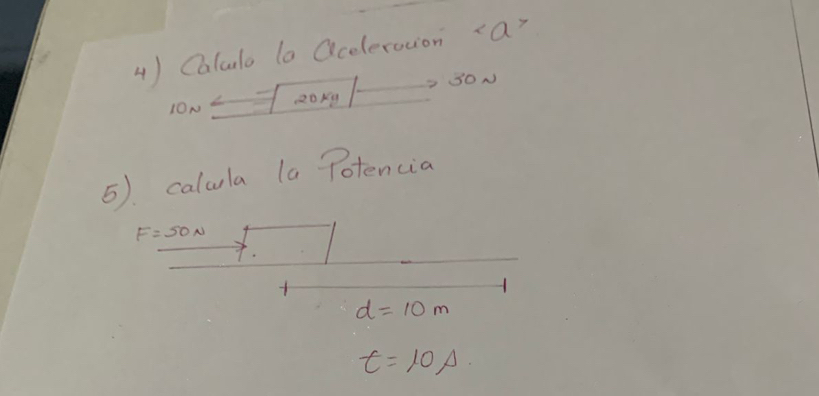 4) Calculo la aceleracion <a>
10N 20kg 30N
5). calcula la Potencia
F=50N
d=10m
t=10s.